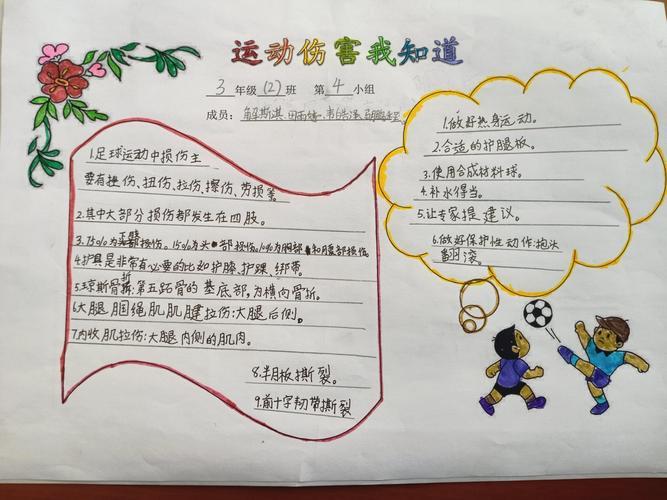 运动伤害我知道
3年级(2)班 第4小组
成员：
1.足球运动中损伤主
要有挫伤、扭伤、拉伤、擦伤、劳损等。
2.其中大部分损伤都发生在四肢。
3.75%为下肢损伤。15%为头部损伤。10%为胸部和腹部损伤。
4.护具是非常有必要的比如护膝、护踝、绑带。
5.琼斯骨折：第五跖骨的基底部，为横向骨折。
6.大腿腘绳肌肌腱拉伤：大腿后侧。
7.内收肌拉伤：大腿内侧的肌肉。
8.半月板撕裂。
9.前十字韧带撕裂
1.做好热身运动。
2.合适的护腿板。
3.使用合成材料球。
4.补水得当。
5.让专家提建议。
6.做好保护性动作：抱头
翻滚。